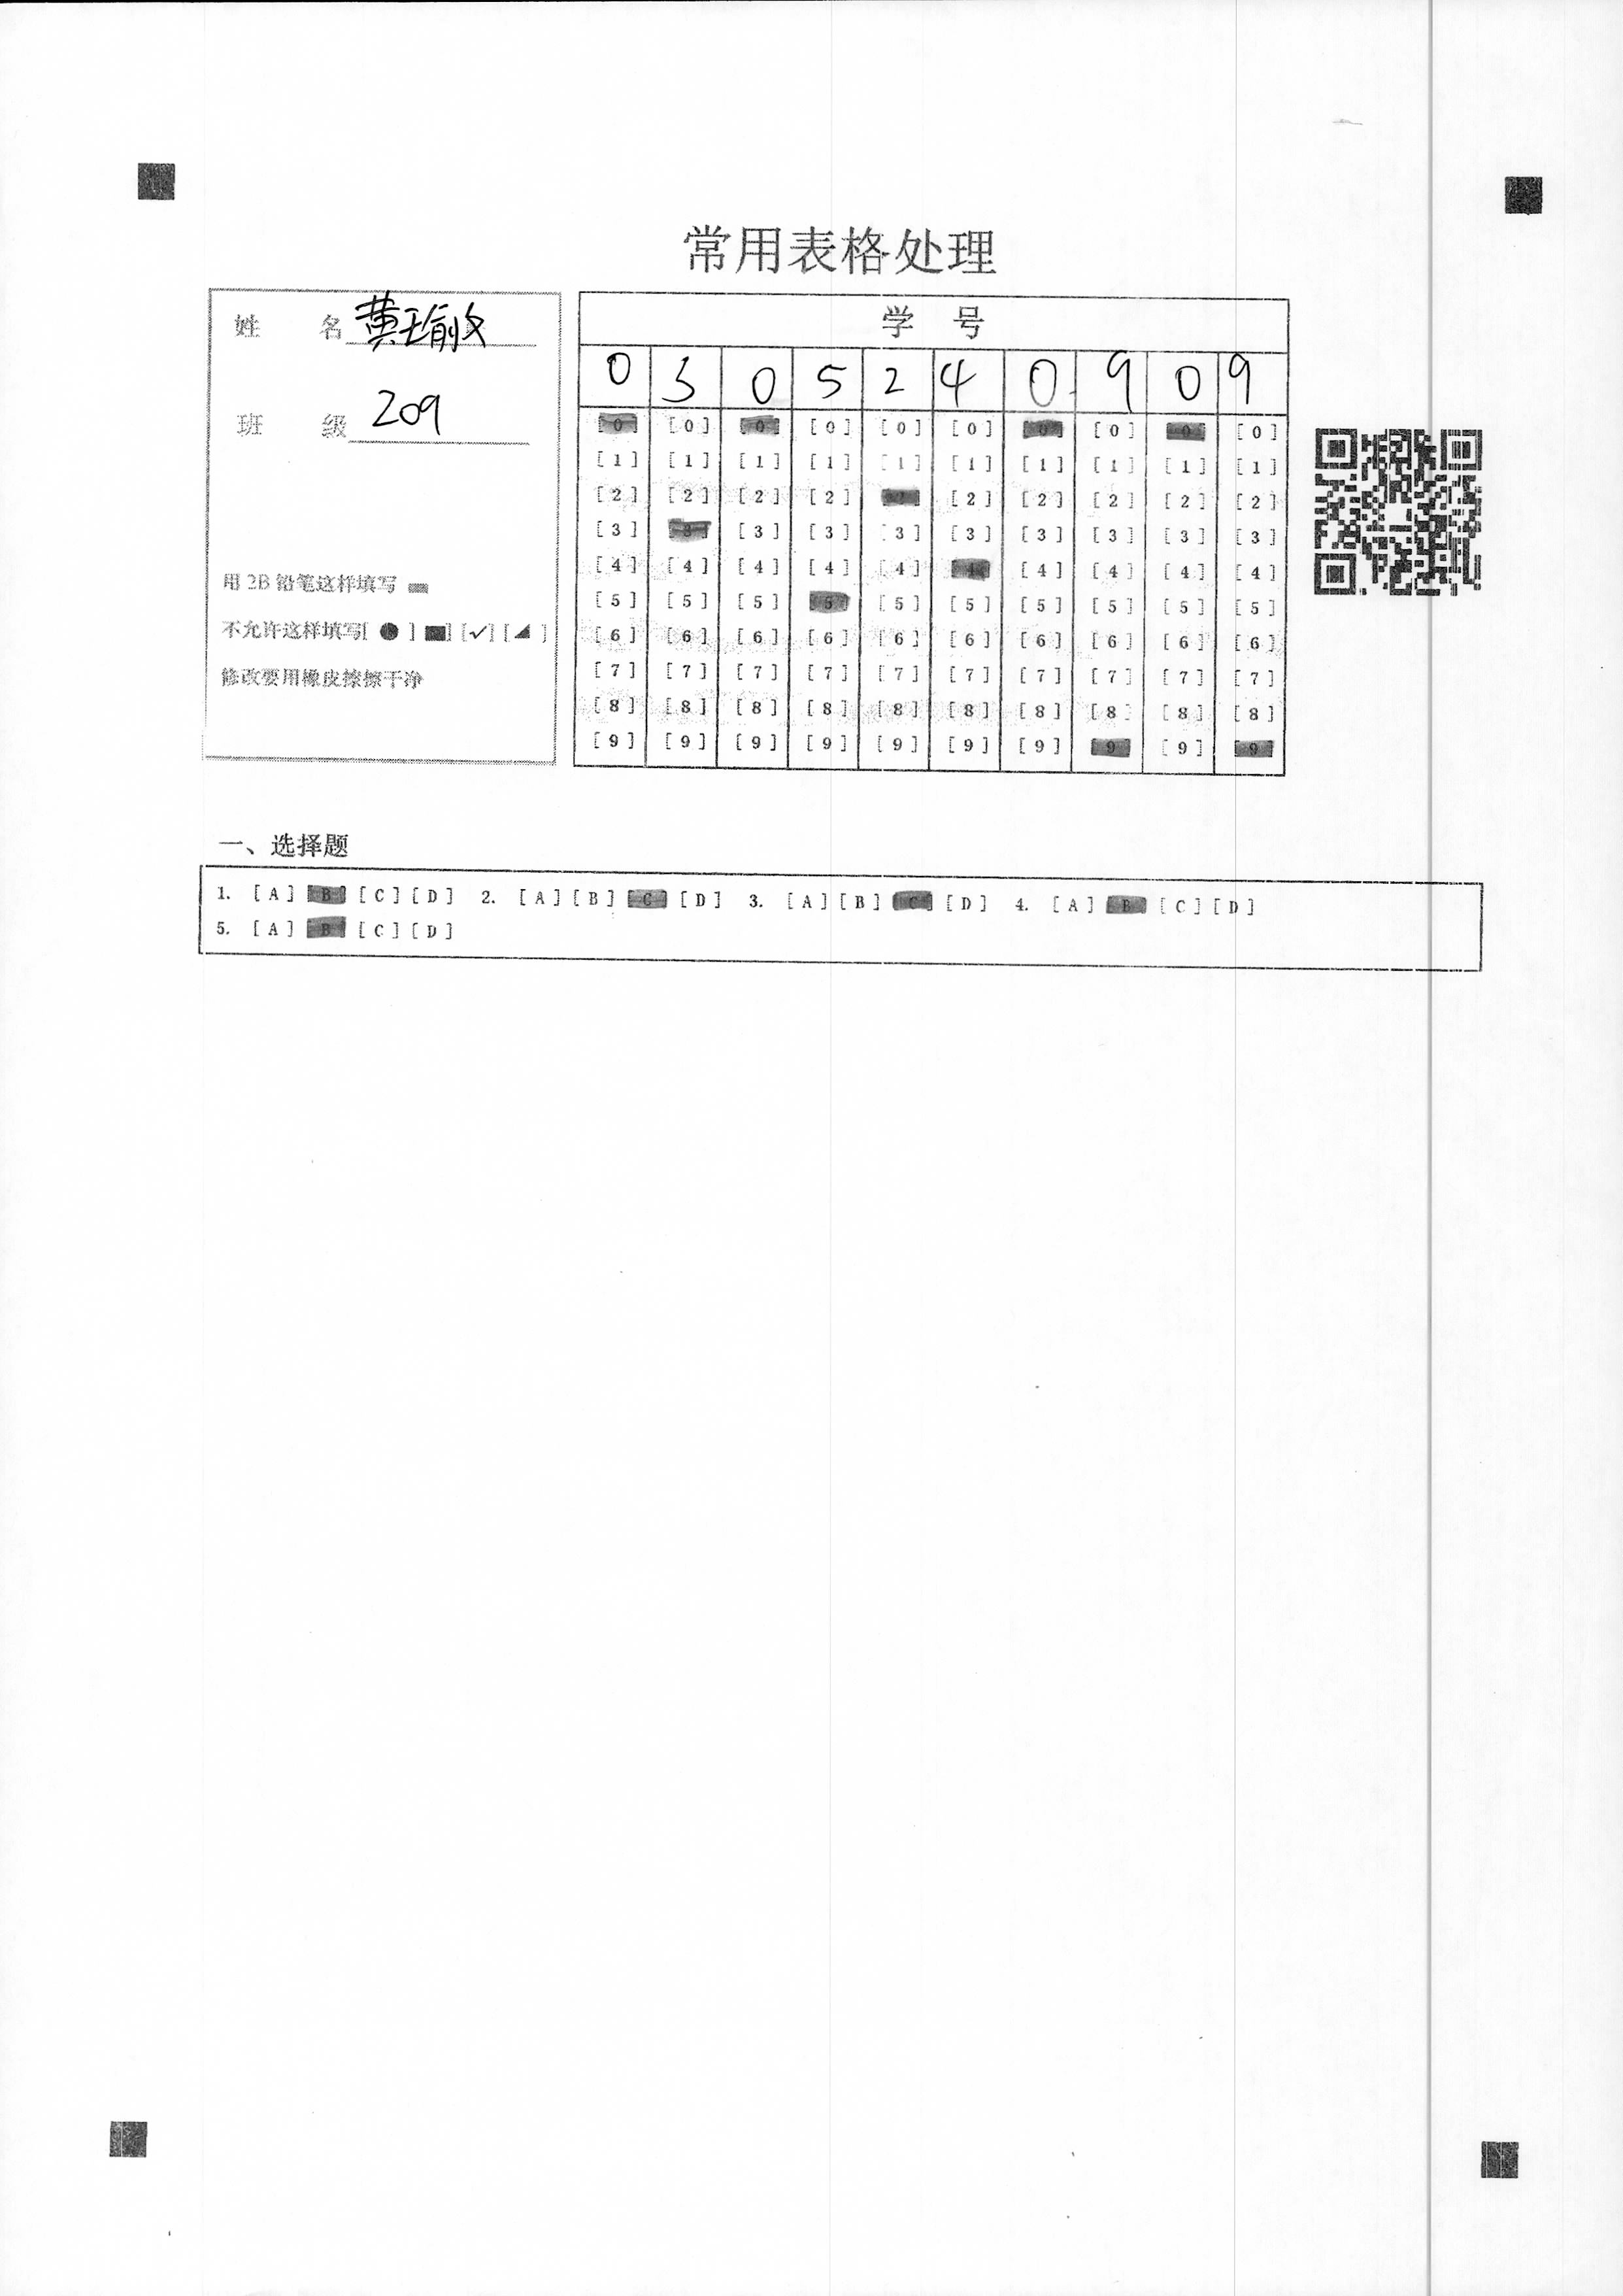 常用表格处理
姓 名 黄瑜敏
班 级 209
用 2B 铅笔这样填写
不允许这样填写[ ● ] ■] [✓] [◢ ]
修改要用橡皮擦擦干净
学 号
0 3 0 5 2 4 0 9 0 9
[0] [0] [0] [0] [0] [0] [0] [0] [0] [0]
[1] [1] [1] [1] [1] [1] [1] [1] [1] [1]
[2] [2] [2] [2] [2] [2] [2] [2] [2] [2]
[3] [3] [3] [3] [3] [3] [3] [3] [3] [3]
[4] [4] [4] [4] [4] [4] [4] [4] [4] [4]
[5] [5] [5] [5] [5] [5] [5] [5] [5] [5]
[6] [6] [6] [6] [6] [6] [6] [6] [6] [6]
[7] [7] [7] [7] [7] [7] [7] [7] [7] [7]
[8] [8] [8] [8] [8] [8] [8] [8] [8] [8]
[9] [9] [9] [9] [9] [9] [9] [9] [9] [9]
一、选择题
1. [A] [B] [C] [D] 2. [A] [B] [C] [D] 3. [A] [B] [C] [D] 4. [A] [B] [C] [D]
5. [A] [B] [C] [D]